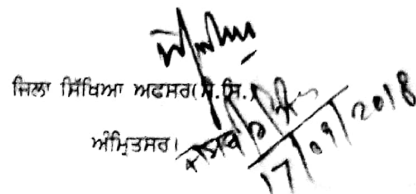 ਜਿਲਾ ਸਿੱਖਿਆ ਅਫਸਰ(ਸੈ.ਸਿ.)
ਅੰਮ੍ਰਿਤਸਰ।
17/09/2018